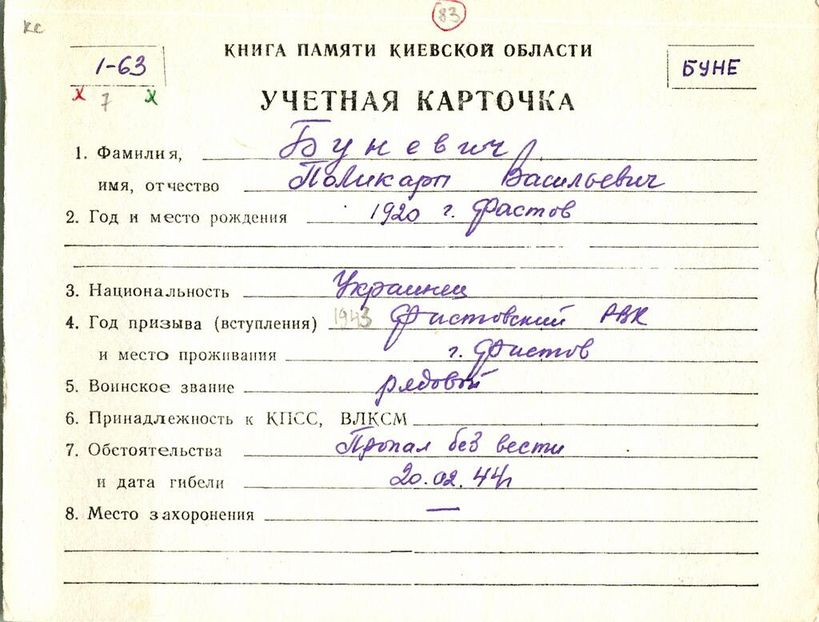 кс
83
КНИГА ПАМЯТИ КИЕВСКОЙ ОБЛАСТИ
1-63
БУНЕ
х 7 х
УЧЕТНАЯ КАРТОЧКА
1. Фамилия, Буневич
имя, отчество Поликарп Васильевич
2. Год и место рождения 1920 г. Фастов
3. Национальность Украинец
4. Год призыва (вступления) 1943 Фастовский РВК
и место проживания г. Фастов
5. Воинское звание рядовой
6. Принадлежность к КПСС, ВЛКСМ
7. Обстоятельства Пропал без вести
и дата гибели 20.02.44г
8. Место захоронения —